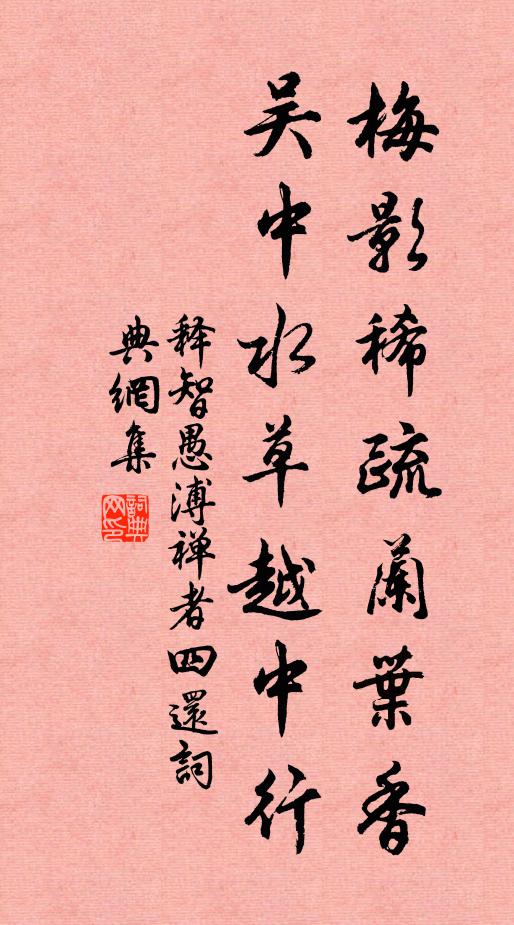 梅影稀疏蘭葉香
吴中水草越中行
释智愚溥禅者四還詞
典網集
詞典网印